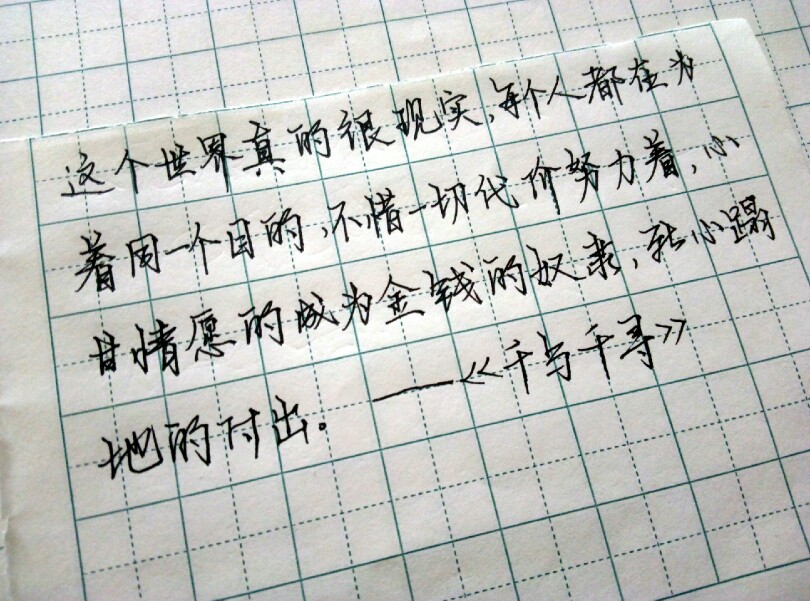 这个世界真的很现实,每个人都在为
着同一个目的,不惜一切代价努力着,心
甘情愿的成为金钱的奴隶,死心蹋
地的付出。 ——《千与千寻》